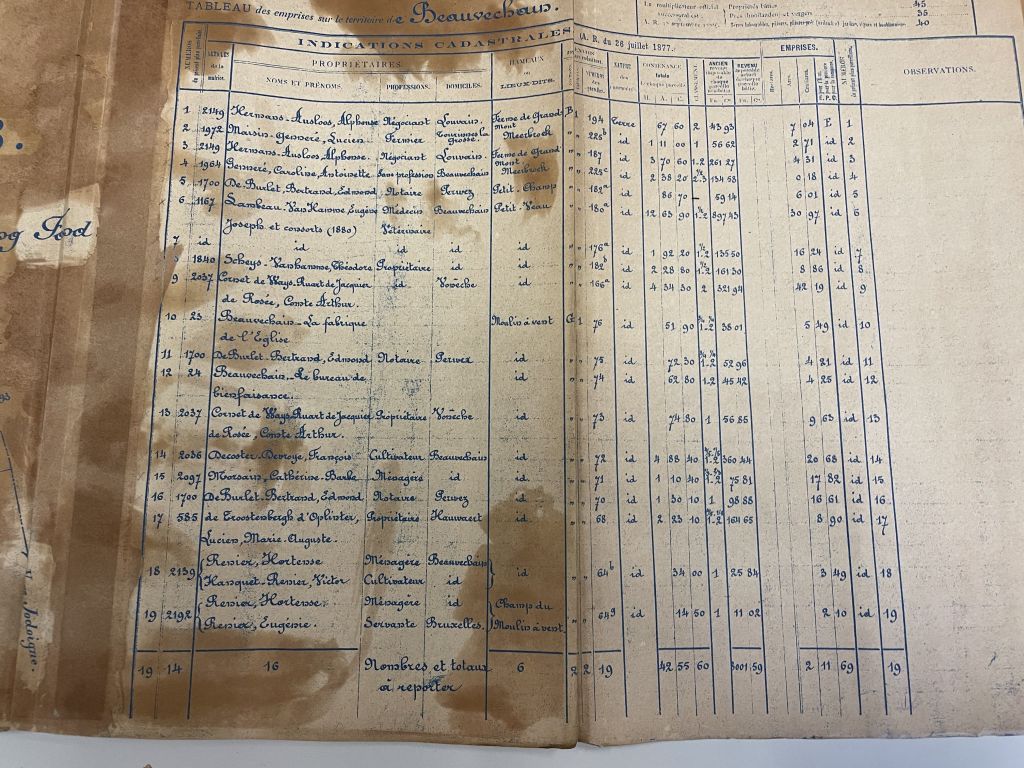 TABLEAU des emprises sur le territoire de Beauvechain.
45
35
40
INDICATIONS CADASTRALES (A. R. du 28 juillet 1877.)
PROPRIÉTAIRES. HAMEAUX ou LIEUX-DITS. CONTENANCE EMPRISES. OBSERVATIONS.
NOMS ET PRÉNOMS. PROFESSIONS. DOMICILES.
1 2149 Hermans-Ausloos, Alphonse Négociant Louvain. Ferme de Grand-Mont B 1 194 Terre 67 60 2 43 93 7 04 E 1
2 1972 Maisin-Genneré, Lucien Fermier Tourinnes la Grosse. Meerbroek " " 226b id 1 11 00 1 56 62 2 71 id 2
3 2149 Hermans-Ausloos, Alphonse. Négociant Louvain. Ferme de Grand Mont. " " 187 id 3 70 60 1-2 261 27 4 31 id 3
4 1964 Genneré, Caroline, Antoinette Sans profession Beauvechain Meerbroek " " 225c id 2 38 20 2-3 134 58 0 18 id 4
5 1700 De Burlet, Bertrand, Edmond Notaire Perwez Petit-Champ " " 182a id 86 70 59 14 6 01 id 5
6 1167 Lambeau-VanHamme, Eugène Médecin Beauvechain Petit-Veau " " 180a id 12 63 90 1-2 897 43 30 97 id 6
Joseph et consorts (1880) Vétérinaire
7 id id id id id " " 176a id 1 92 20 1-2 135 50 16 24 id 7
8 1840 Scheys-Vanhamme, Théodore Propriétaire id id " " 182b id 2 28 80 1-2 161 30 8 86 id 8
9 2037 Cornet de Ways, Ruart de Jacquier id Vonèche id " " 166a id 4 34 30 2 321 94 42 19 id 9
de Rosée, Comte Arthur.
10 23 Beauvechain-La fabrique Moulin à vent G 1 76 id 51 90 1-2 38 01 5 49 id 10
de l'Église
11 1700 De Burlet-Bertrand, Edmond Notaire Perwez id " " 75 id 72 30 1-2 52 96 4 21 id 11
12 24 Beauvechain-Le bureau de id " " 74 id 62 80 1-2 45 42 4 25 id 12
bienfaisance.
13 2037 Cornet de Ways, Ruart de Jacquier Propriétaire Vonèche id " " 73 id 74 80 1 56 85 9 63 id 13
de Rosée, Comte Arthur.
14 2036 Decoster-Devroye, François Cultivateur Beauvechain id " " 72 id 4 88 40 1-2 360 44 20 68 id 14
15 2097 Morsain, Cathérine-Barbe Ménagère id id " " 71 id 1 10 40 1-2 75 81 17 82 id 15
16 1700 De Burlet-Bertrand, Edmond Notaire Perwez id " " 70 id 1 30 10 1 98 88 16 61 id 16
17 585 de Troostenbergh d'Oplinter, Propriétaire Hauwaert id " " 68 id 2 23 10 1-2 164 65 8 90 id 17
Lucien, Marie-Auguste.
Renier, Hortense Ménagère Beauvechain
18 2139 id " " 64b id 34 00 1 25 84 3 49 id 18
Hanquet-Renier, Victor Cultivateur id
Renier, Hortense Ménagère id Champ du
19 2192 " " 64g id 14 50 1 11 02 2 10 id 19
Renier, Eugénie. Servante Bruxelles. Moulin à vent.
19 14 16 Nombres et totaux 6 2 2 19 42 55 60 3001 59 2 11 69 19
à reporter
Jodoigne.